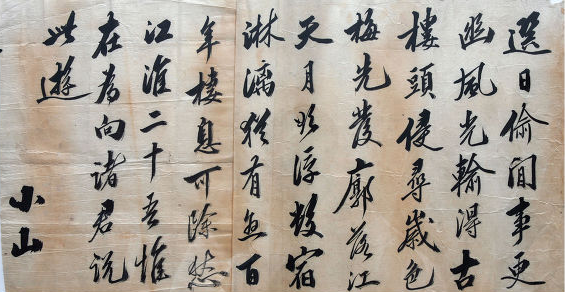 選日偷閒事更
幽風光輸得古
樓頭侵尋歲色
梅先發廓落江
天月影浮數宿
淋漓猶有百
年棲息可除愁
江淮二十吾惟
在為向諸君說
此遊
小山